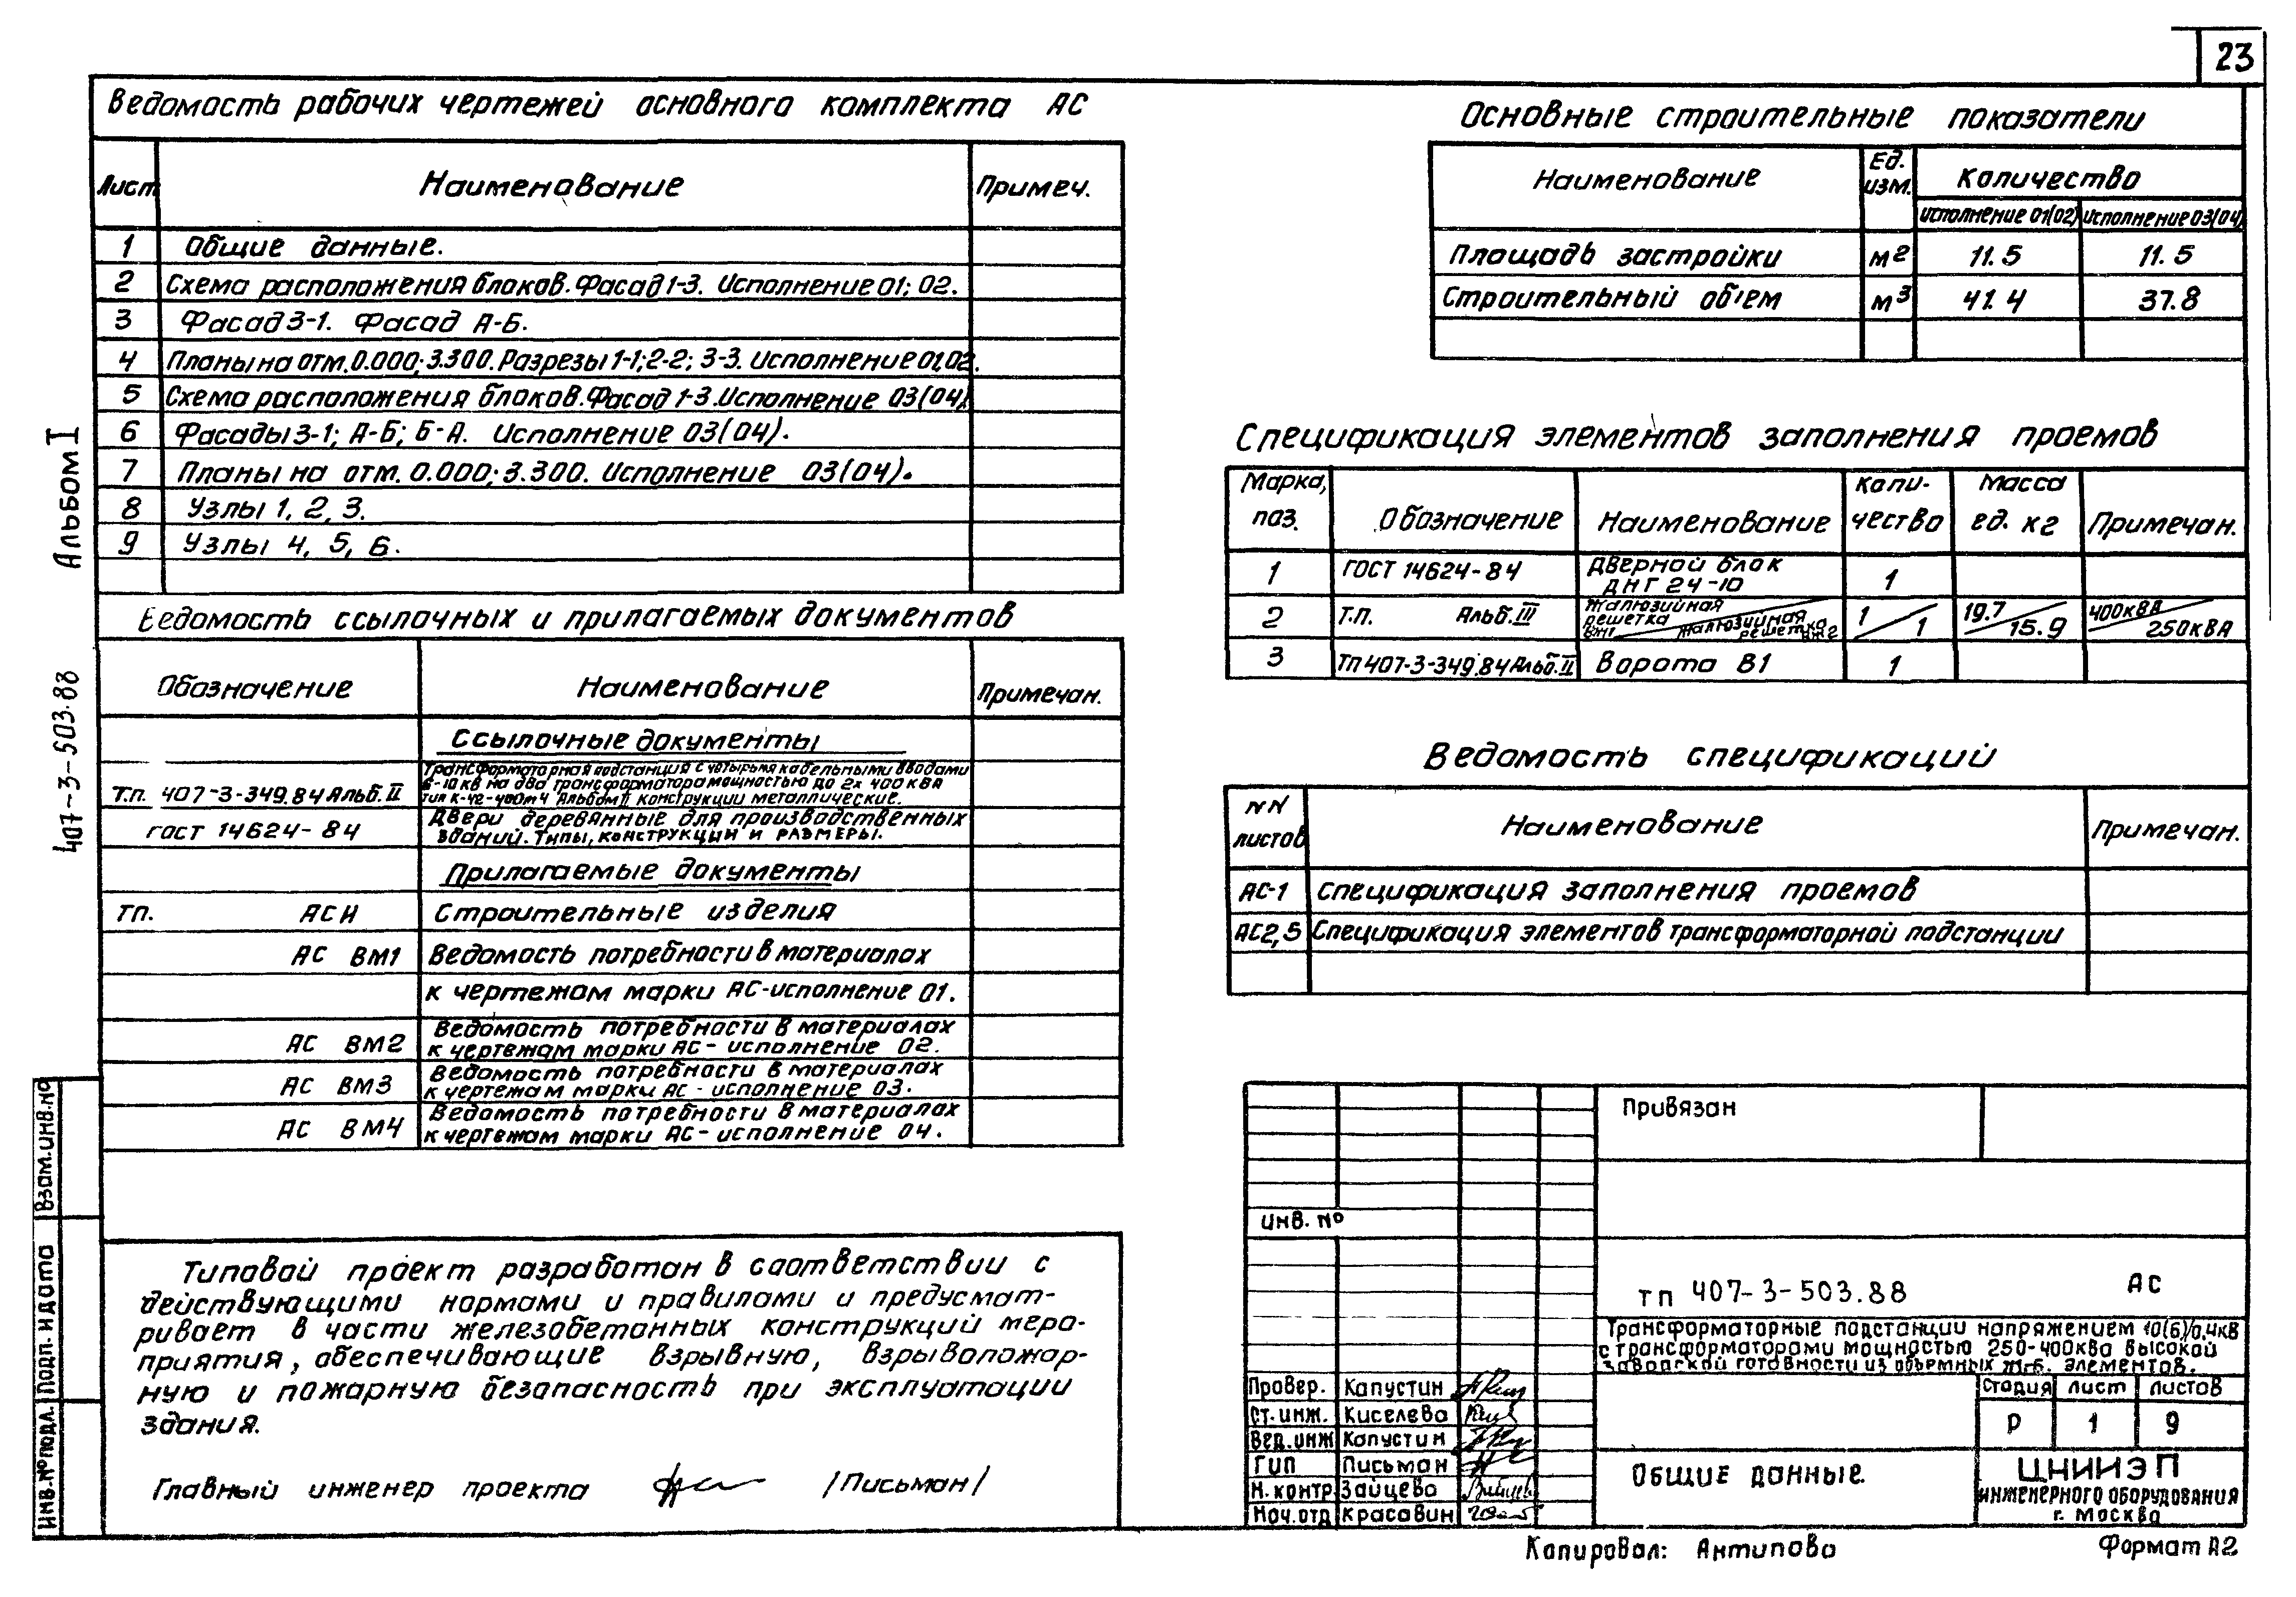 23
Ведомость рабочих чертежей основного комплекта АС
Лист Наименование Примеч.
1 Общие данные.
2 Схема расположения блоков. Фасад 1-3. Исполнение 01; 02.
3 Фасад 3-1. Фасад А-Б.
4 Планы на отм. 0.000; 3.300. Разрезы 1-1; 2-2; 3-3. Исполнение 01,02.
5 Схема расположения блоков. Фасад 1-3. Исполнение 03(04)
6 Фасады 3-1; А-Б; Б-А. Исполнение 03(04).
7 Планы на отм. 0.000; 3.300. Исполнение 03(04).
8 Узлы 1, 2, 3.
9 Узлы 4, 5, 6.
Ведомость ссылочных и прилагаемых документов
Обозначение Наименование Примечан.
Ссылочные документы
Т.п. 407-3-349.84 Альб. II
Трансформаторная подстанция с четырьмя кабельными вводами
6-10 кв на два трансформатора мощностью до 2х 400 кВА
тип К-42-400м4 Альбом II Конструкции металлические.
гост 14624-84
Двери деревянные для производственных
зданий. Типы, конструкции и размеры.
Прилагаемые документы
ТП. АСИ Строительные изделия
АС ВМ1 Ведомость потребности в материалах
к чертежам марки АС-исполнение 01.
АС ВМ2 Ведомость потребности в материалах
к чертежам марки АС - исполнение 02.
АС ВМ3 Ведомость потребности в материалах
к чертежам марки АС - исполнение 03.
АС ВМ4 Ведомость потребности в материалах
к чертежам марки АС - исполнение 04.
Типовой проект разработан в соответствии с
действующими нормами и правилами и предусмат-
ривает в части железобетонных конструкций меро-
приятия, обеспечивающие взрывную, взрывопожар-
ную и пожарную безопасность при эксплуатации
здания.
Главный инженер проекта /Письман/
Альбом I
407-3-503.88
Взам. инв. №
Подп. и дата
Инв. № подл.
Основные строительные показатели
Наименование Ед. изм. Количество
исполнение 01(02) исполнение 03(04)
Площадь застройки м2 11.5 11.5
Строительный объем м3 41.4 37.8
Спецификация элементов заполнения проемов
Марка, поз. Обозначение Наименование Коли-чество Масса ед. кг Примечан.
1 ГОСТ 14624-84 Дверной блок ДНГ 24-10 1
2 Т.п. Альб. III Жалюзийная решетка ВЖ1 / Жалюзийная решетка ВЖ2 1/1 19.7/15.9 400кВА/250кВА
3 ТП 407-3-349.84 Альб. II Ворота В1 1
Ведомость спецификаций
NN листов Наименование Примечан.
АС-1 Спецификация заполнения проемов
АС2,5 Спецификация элементов трансформаторной подстанции
Привязан
Инв. №
ТП 407-3-503.88 АС
Трансформаторные подстанции напряжением 10(6)/0,4кв
с трансформаторами мощностью 250-400ква высокой
заводской готовности из объемных ж.б. элементов.
Провер. Капустин
Ст. инж. Киселева
Вед. инж Капустин
ГИП Письман
Н. контр. Зайцева
Нач. отд Красавин
Стадия Лист Листов
Р 1 9
Общие данные.
ЦНИИЭП
инженерного оборудования
г. Москва
Копировал: Антипова
Формат А2